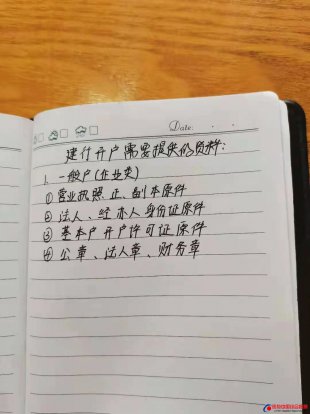 Date:
建行开户需要提供的资料:
1. 一般户(企业类)
①营业执照正、副本原件
②法人、经办人身份证原件
③基本户开户许可证原件
④公章、法人章、财务章